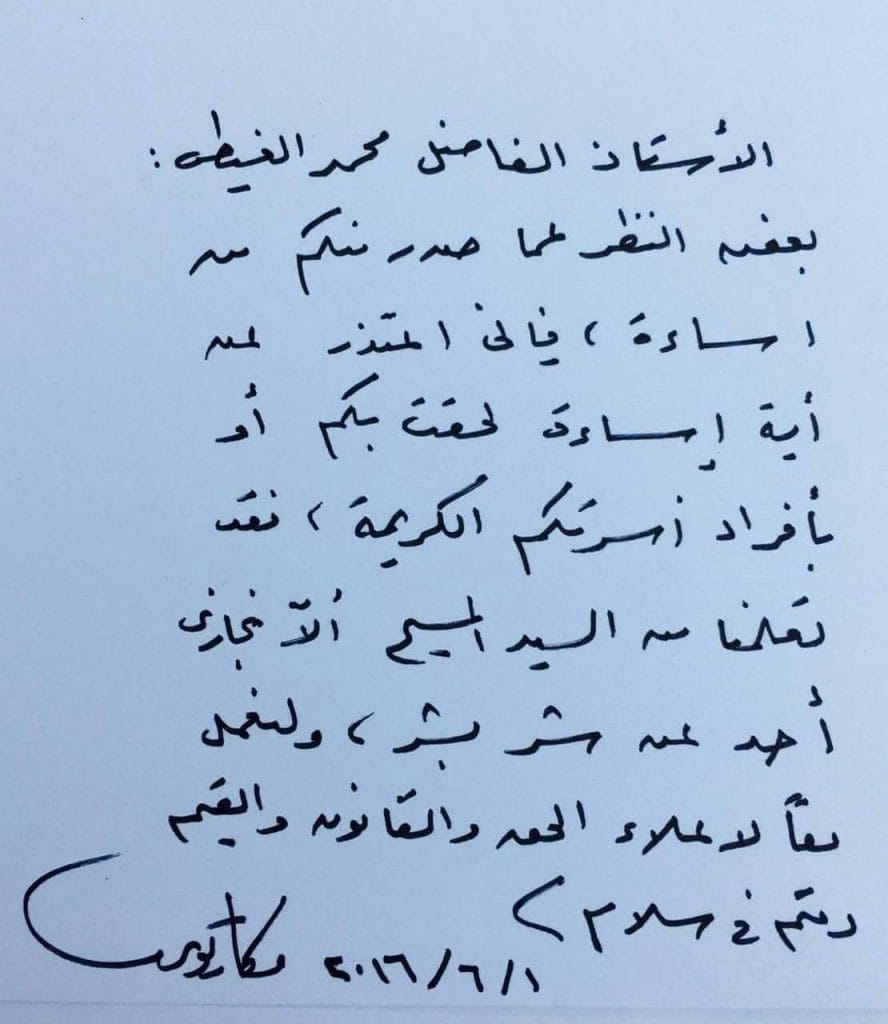 الأستاذ الفاضل محمد الغيطى :
بغض النظر عما صدر منكم من
اساءة ، فإننى اعتذر عن
أية إساءة لحقت بكم أو
بأفراد أسرتكم الكريمة ، فقد
تعلمنا من السيد المسيح ألاّ نجازى
أحد عن شر بشر ، ولنعمل
معاً لاعلاء الحق والقانون والقيم
دمتم فى سلام
مكاريوس ٢٠١٦/٦/١